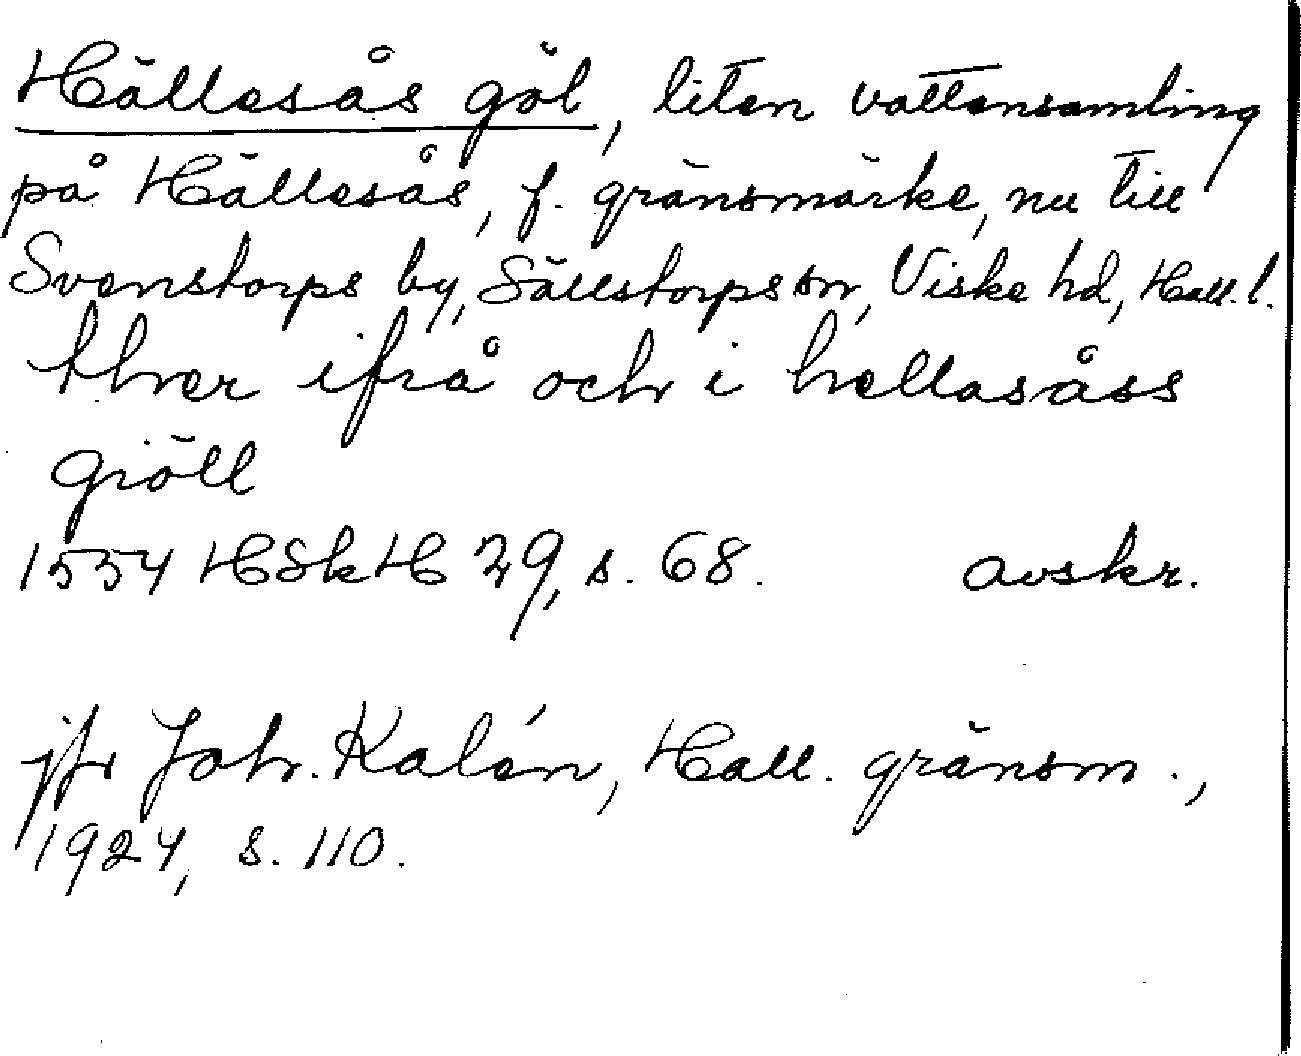 Hällesås göl, liten vattensamling
på Hällesås, f. gränsmärke, nu till
Svenstorps by, Sällstorps sn, Viske hd, Hall. l.
thver ifrå och i hellasåss
giöll
1554 HSkH 29, s. 68. avskr.
jfr Joh. Kalén, Hall. gränsm.,
1924, s. 110.